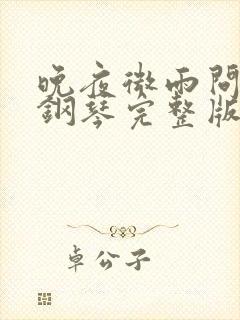 晚夜微雨問
鋼琴完整版
卓公子